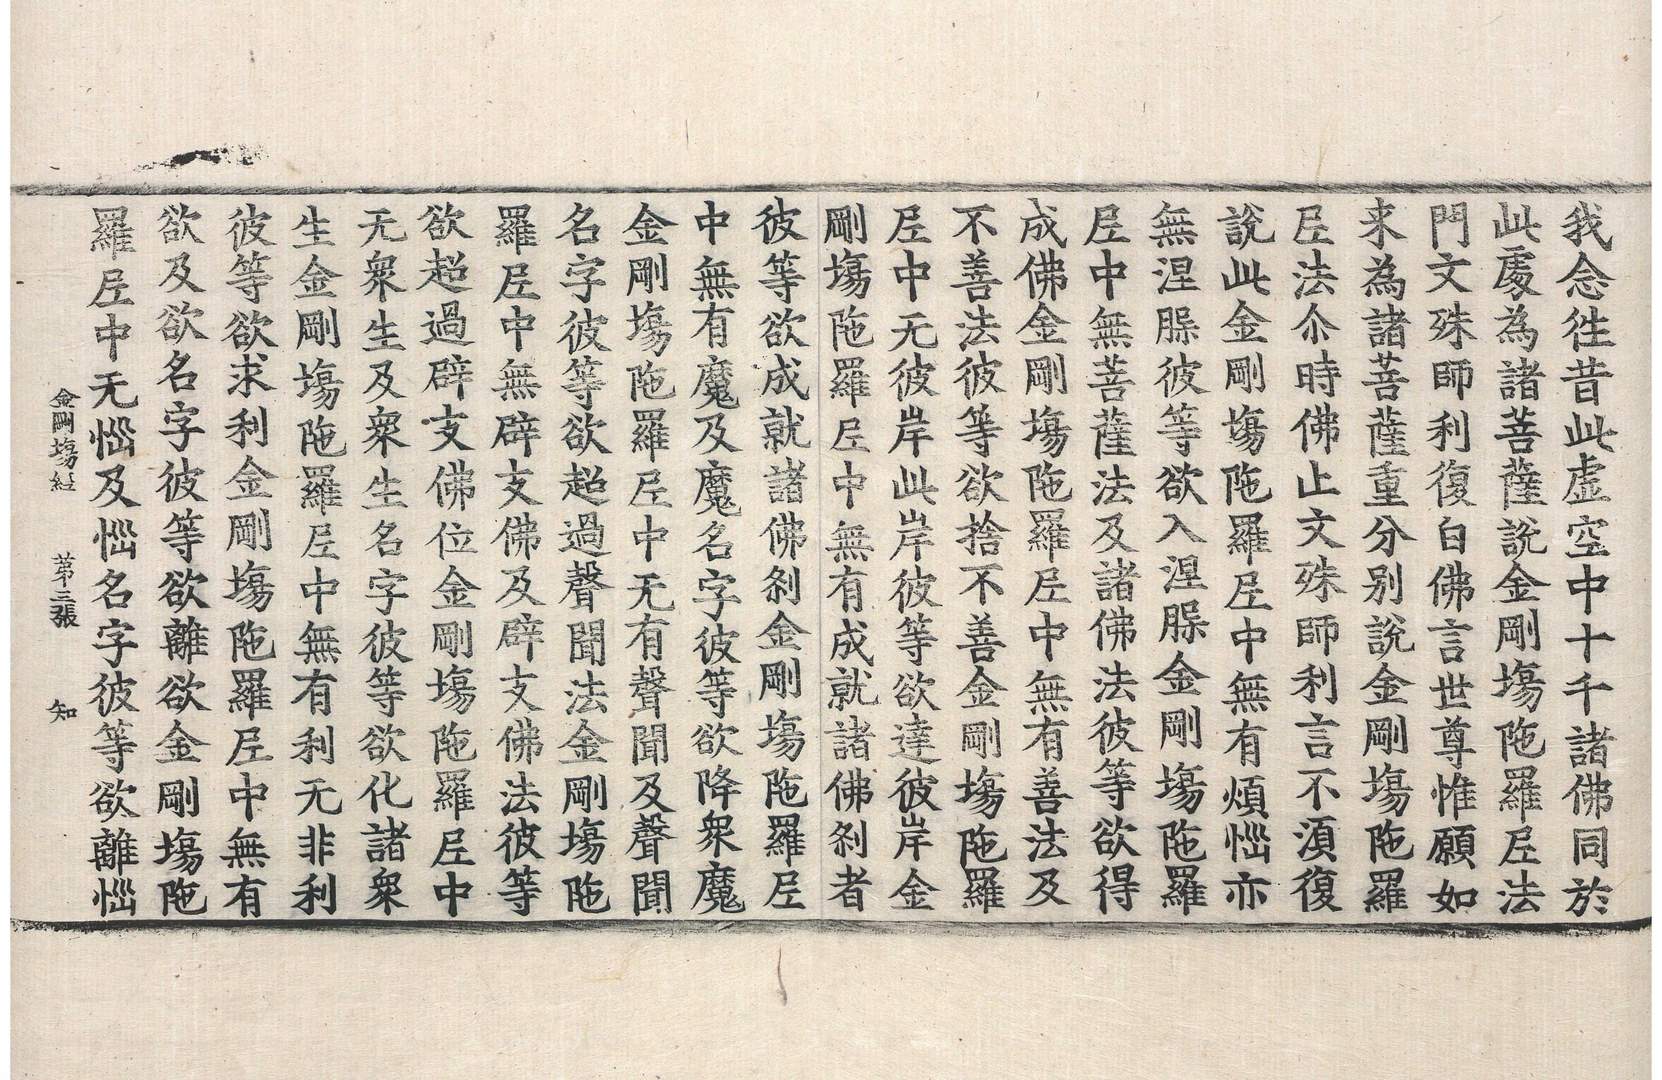 我念往昔此虛空中十千諸佛同於
此處為諸菩薩說金剛場陁羅𡰱法
門文殊師利復白佛言世尊惟願如
来為諸菩薩重分别說金剛場陁羅
𡰱法尒時佛止文殊師利言不湏復
說此金剛場陁羅𡰱中無有煩惱亦
無涅槃彼等欲入涅槃金剛場陁羅
𡰱中無菩薩法及諸佛法彼等欲得
成佛金剛場陁羅𡰱中無有善法及
不善法彼等欲捨不善金剛場陁羅
𡰱中无彼岸此岸彼等欲達彼岸金
剛場陁羅𡰱中無有成就諸佛刹者
彼等欲成就諸佛刹金剛場陁羅𡰱
中無有魔及魔名字彼等欲降衆魔
金剛場陁羅𡰱中无有聲聞及聲聞
名字彼等欲超過聲聞法金剛場陁
羅𡰱中無辟支佛及辟支佛法彼等
欲超過辟支佛位金剛場陁羅𡰱中
无衆生及衆生名字彼等欲化諸衆
生金剛場陁羅𡰱中無有利无非利
彼等欲求利金剛場陁羅𡰱中無有
欲及欲名字彼等欲離欲金剛場陁
羅𡰱中无惱及惱名字彼等欲離惱
金剛場經 苐三張 知